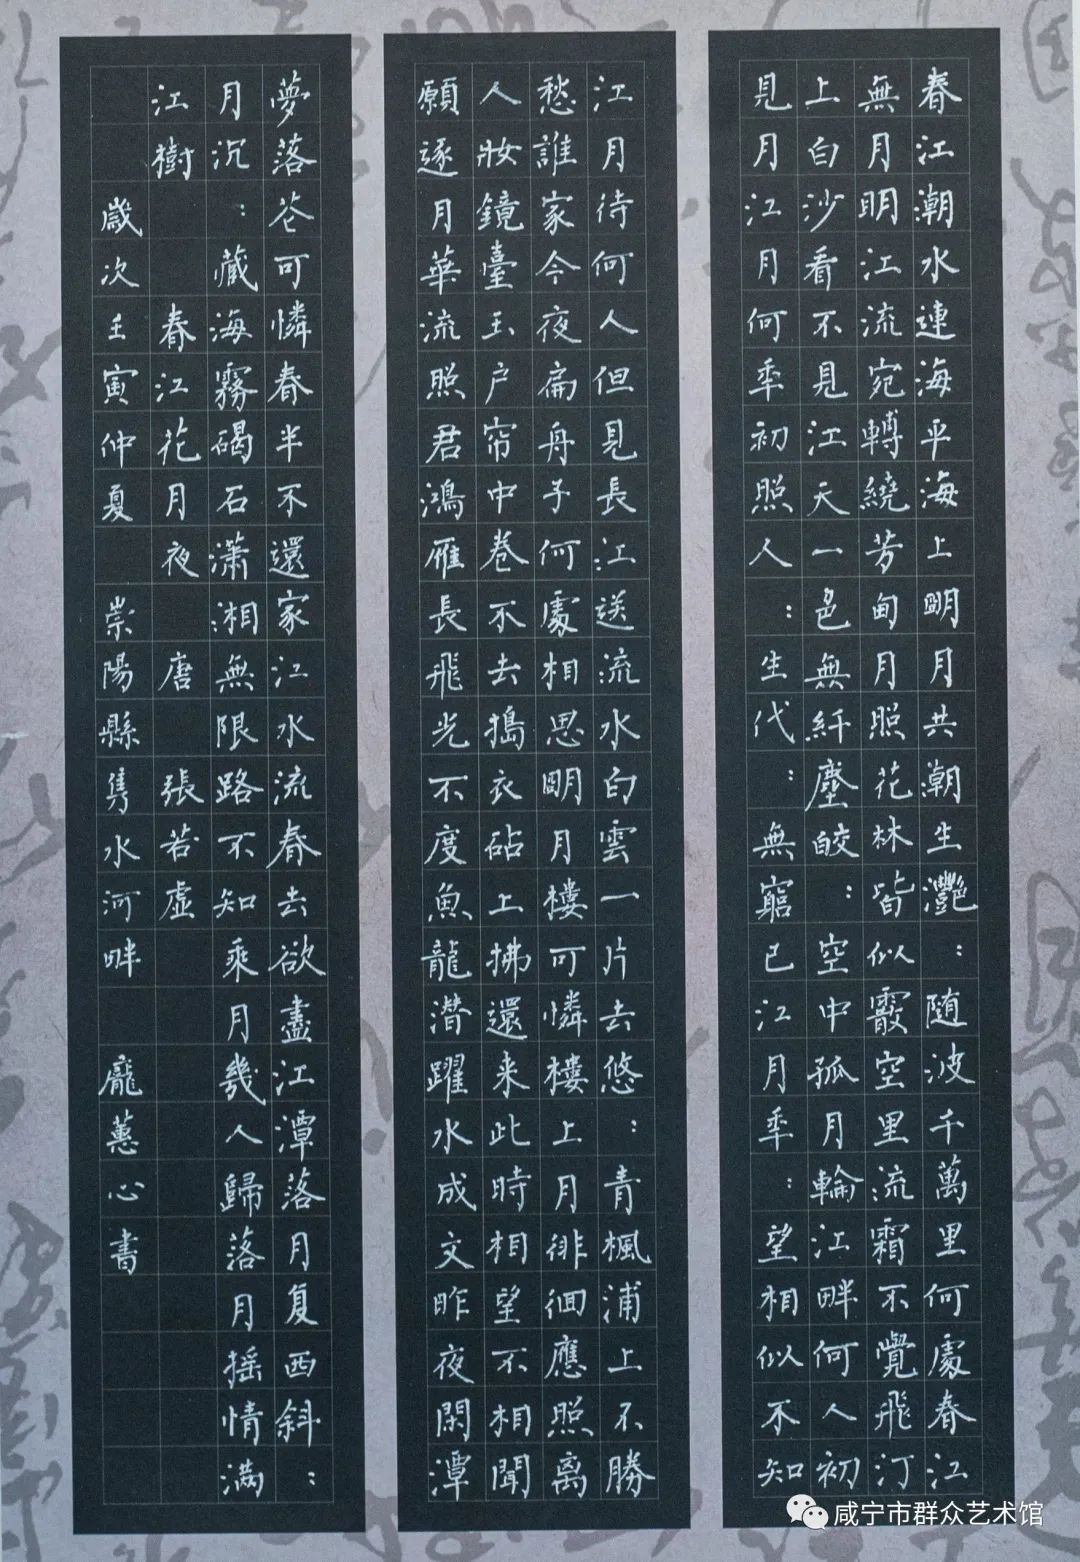 春江潮水連海平海上朙月共潮生灧：随波千萬里何處春江
無月明江流宛轉繞芳甸月照花林皆似霰空里流霜不覺飛汀
上白沙看不見江天一色無纤塵皎：空中孤月輪江畔何人初
見月江月何秊初照人：生代：無窮已江月秊：望相似不知
江月待何人但見長江送流水白雲一片去悠：青楓浦上不勝
愁誰家今夜扁舟子何處相思朙月樓可憐樓上月徘徊應照离
人妝鏡臺玉户帘中卷不去搗衣砧上拂還来此時相望不相聞
願逐月華流照君鴻雁長飛光不度魚龍潛躍水成文昨夜閑潭
夢落花可憐春半不還家江水流春去欲盡江潭落月复西斜：
月沉：藏海霧碣石潇湘無限路不知乘月幾人歸落月摇情滿
江樹 春江花月夜 唐 張若虛
歲次壬寅仲夏 崇陽縣隽水河畔 龐蕙心書
咸宁市群众艺术馆